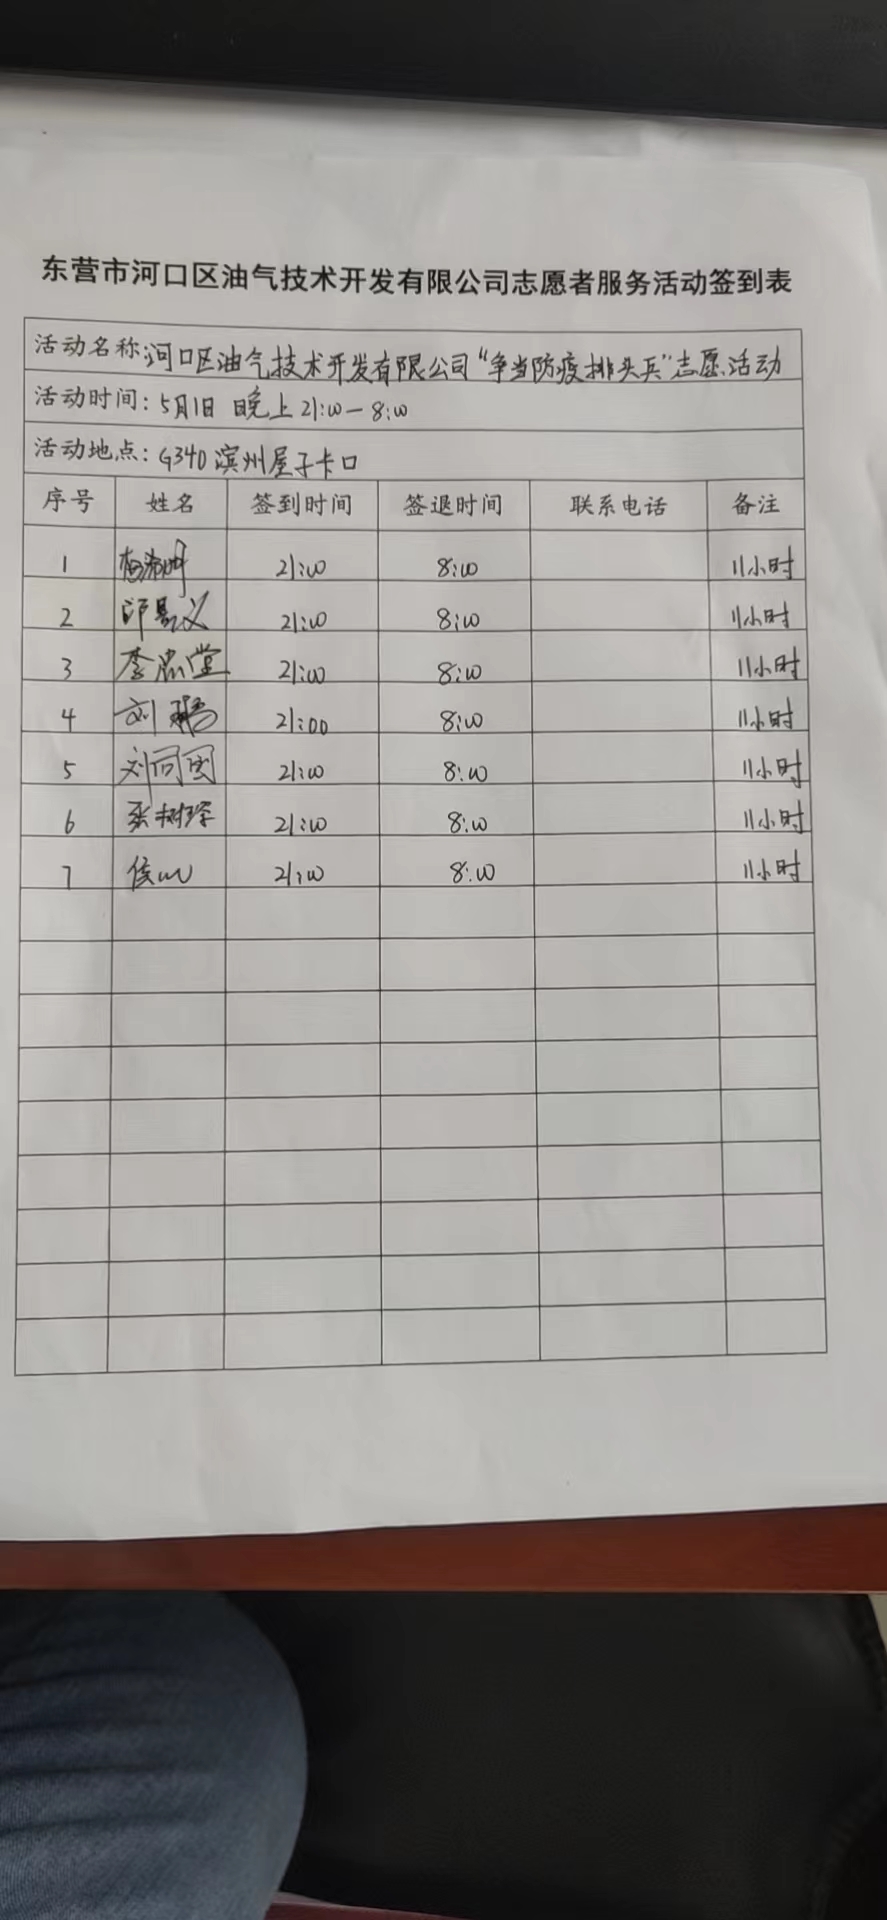 东营市河口区油气技术开发有限公司志愿者服务活动签到表
活动名称:河口区油气技术开发有限公司“争当防疫排头兵”志愿活动
活动时间:5月1日 晚上21:00-8:00
活动地点:G340滨州屋子卡口
序号 姓名 签到时间 签退时间 联系电话 备注
1 21:00 8:00 11小时
2 21:00 8:00 11小时
3 李忠堂 21:00 8:00 11小时
4 刘 21:00 8:00 11小时
5 刘同国 21:00 8:00 11小时
6 张树 21:00 8:00 11小时
7 侯 21:00 8:00 11小时